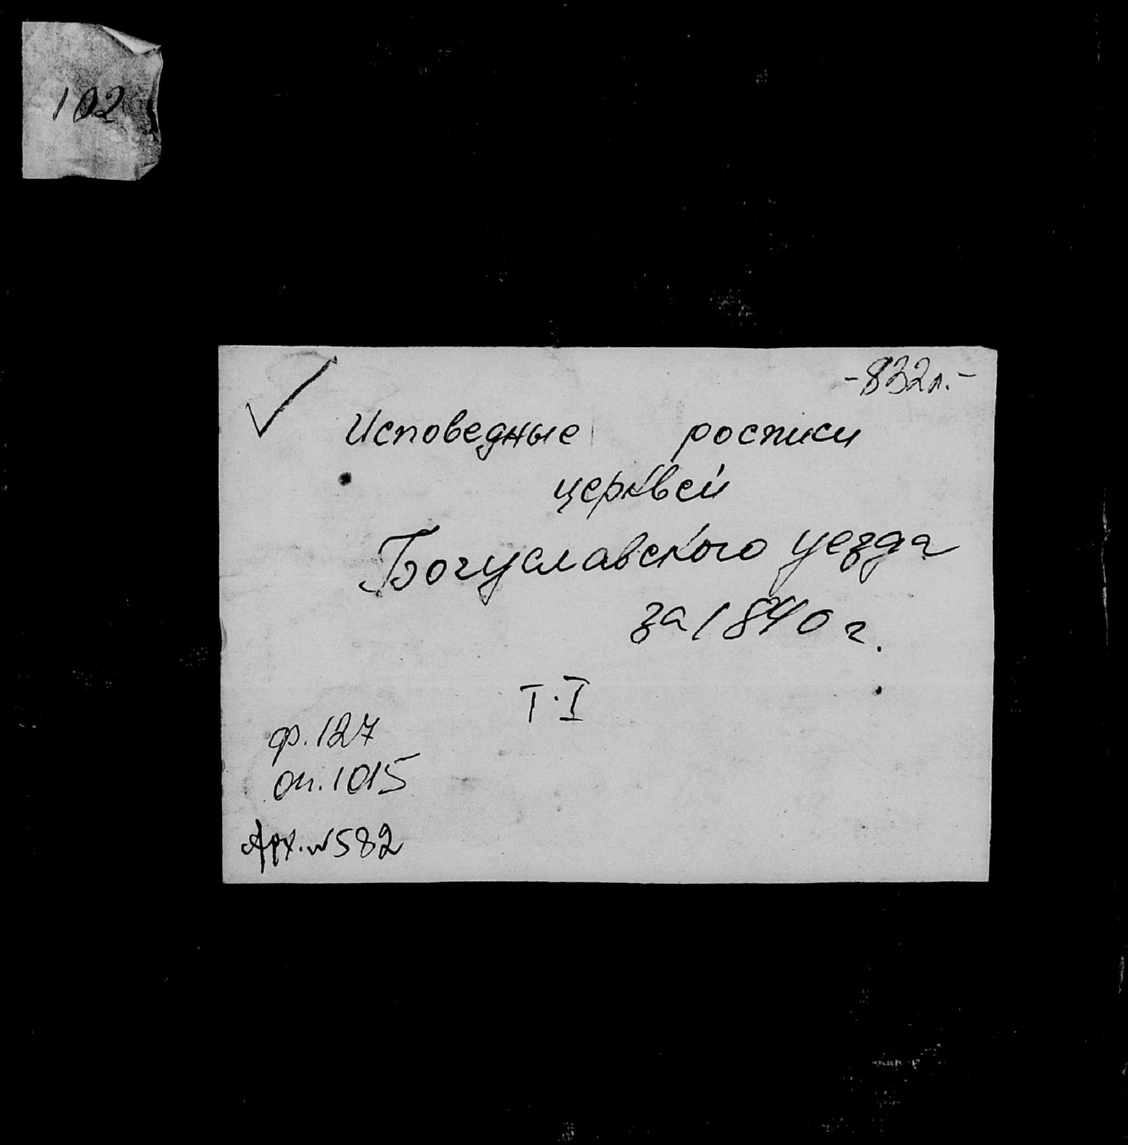 102
-832л.-
Исповедные росписи
церквей
Богуславского уезда
за 1840 г.
Т.I
ф.127
оп.1015
Арх.№582